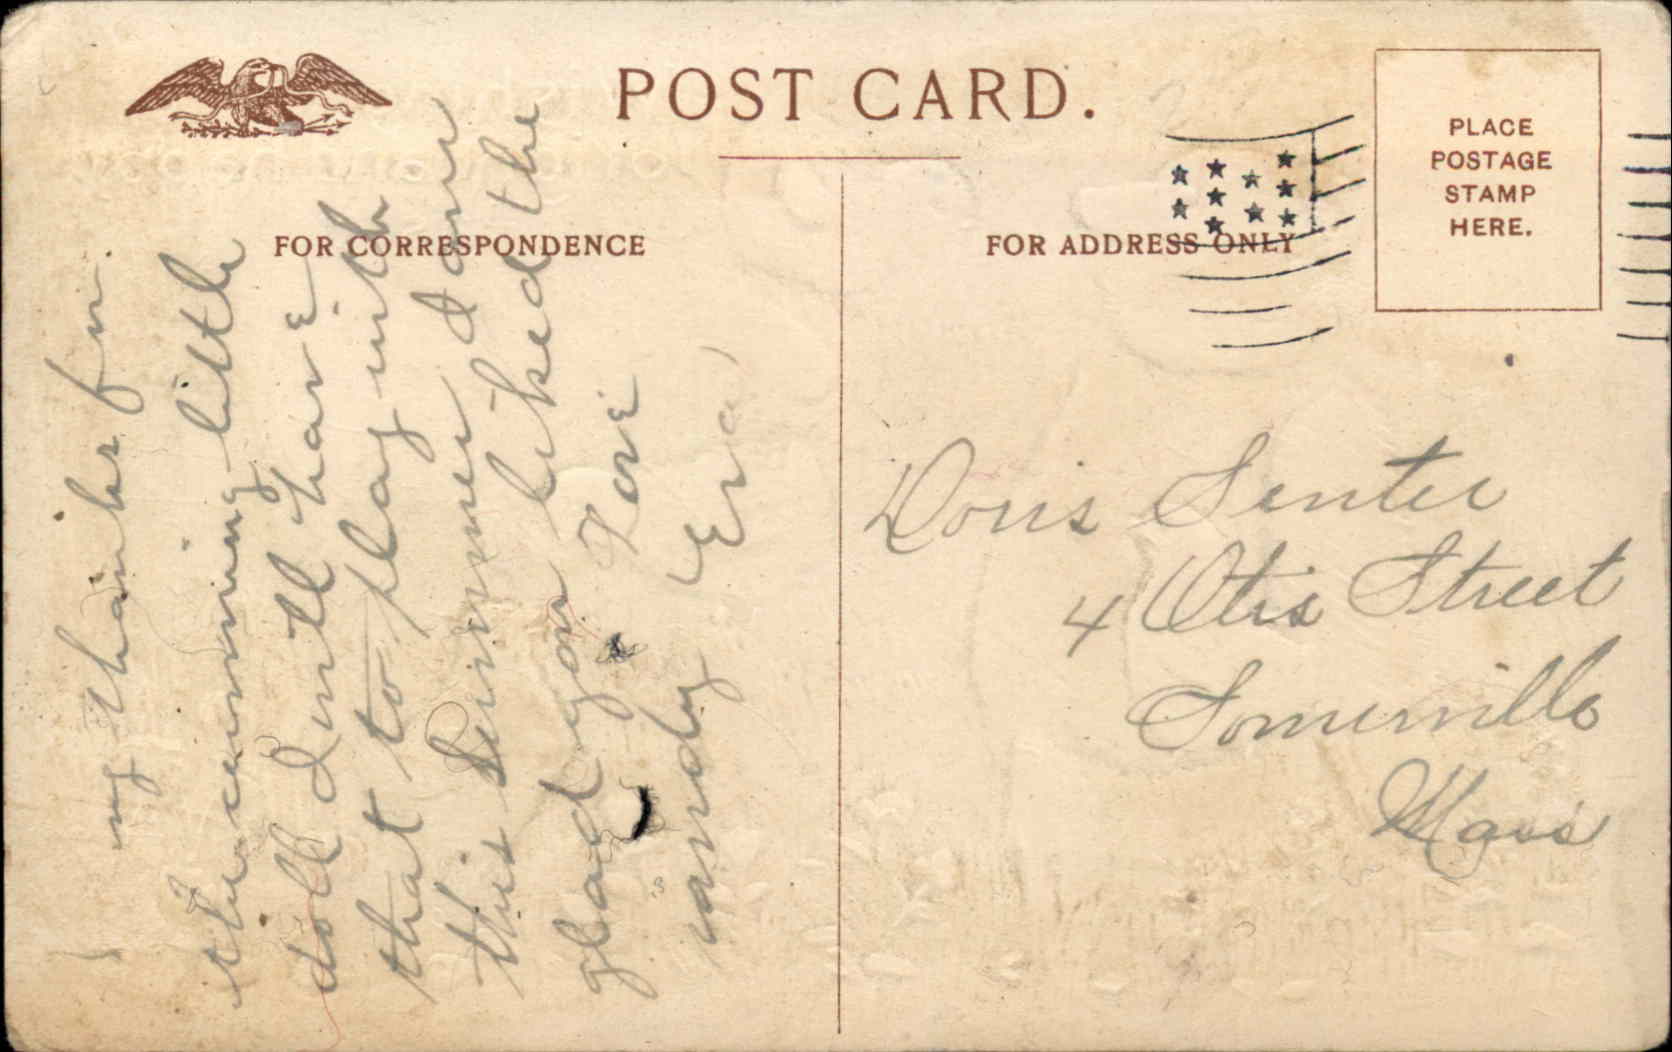 POST CARD.
FOR CORRESPONDENCE
FOR ADDRESS ONLY
PLACE
POSTAGE
STAMP
HERE.
my thanks for
the cunning little
doll I will have
that to play with
this Summer I am
glad you liked the
candy Love
Eva
Doris Senter
4 Otis Street
Somerville
Mass